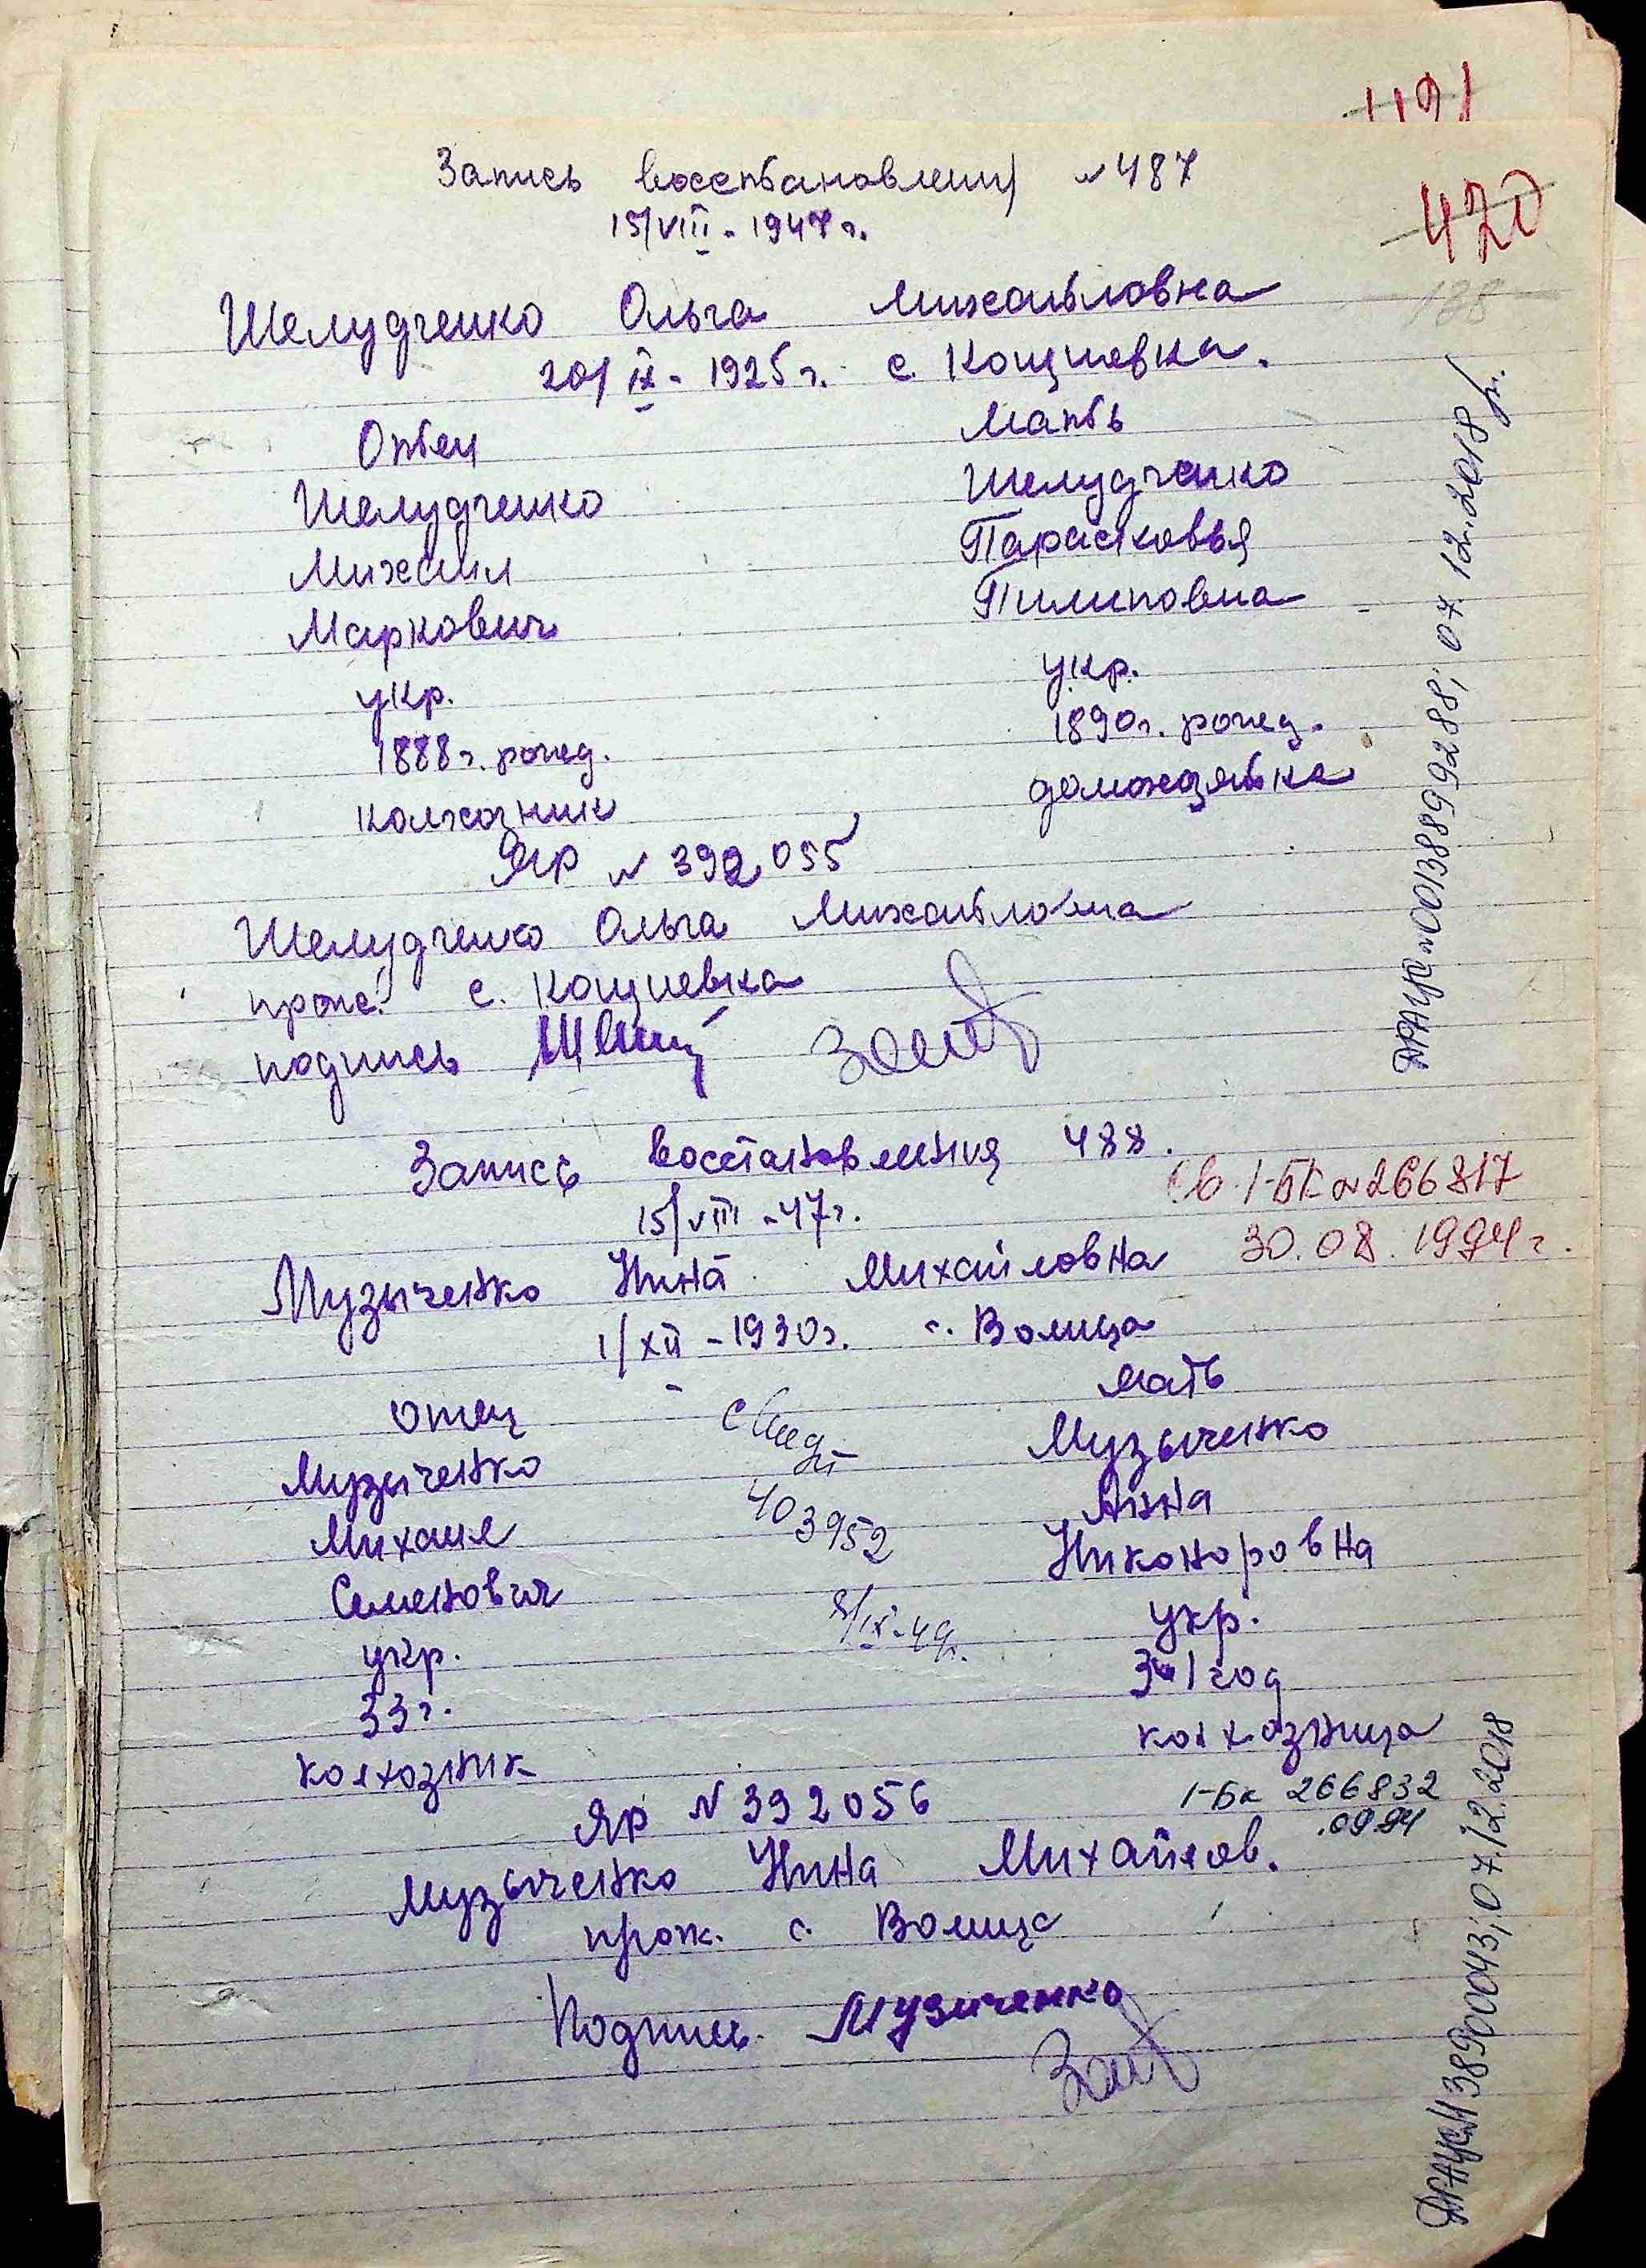 1191
420
188
Запись восстановления № 487
15/VIII - 1947 г.
Шелудченко Ольга Михайловна
20/IX - 1925 г. с. Кощиевка.
Отец Мать
Шелудченко Шелудченко
Михаил Парасковья
Маркович Пилиповна
укр. укр.
1888 г. рожд. 1890 г. рожд.
колхозник домохозяйка
ЯР № 392055
Шелудченко Ольга Михайловна
прож. с. Кощиевка
подпись
ДРАЦС № 00138899288; 07.12.2018 р.
Запись восстановления 488.
15/VIII - 47 г.
Св. I-БК № 266817
30.08.1994 г.
Музыченко Нина Михайловна
1/XII - 1930 г. с. Волица
отец мать
свид
Музыченко Музыченко
403952
Михаил Анна
Семенович Никоноровна
8/IX-49г.
укр. укр.
33 г. 31 год
колхозник колхозница
ЯР № 392056
I-Бк 266832
.09.94
Музыченко Нина Михайлов.
прож. с. Волица
Подпись. Музиченко
07.12.2018